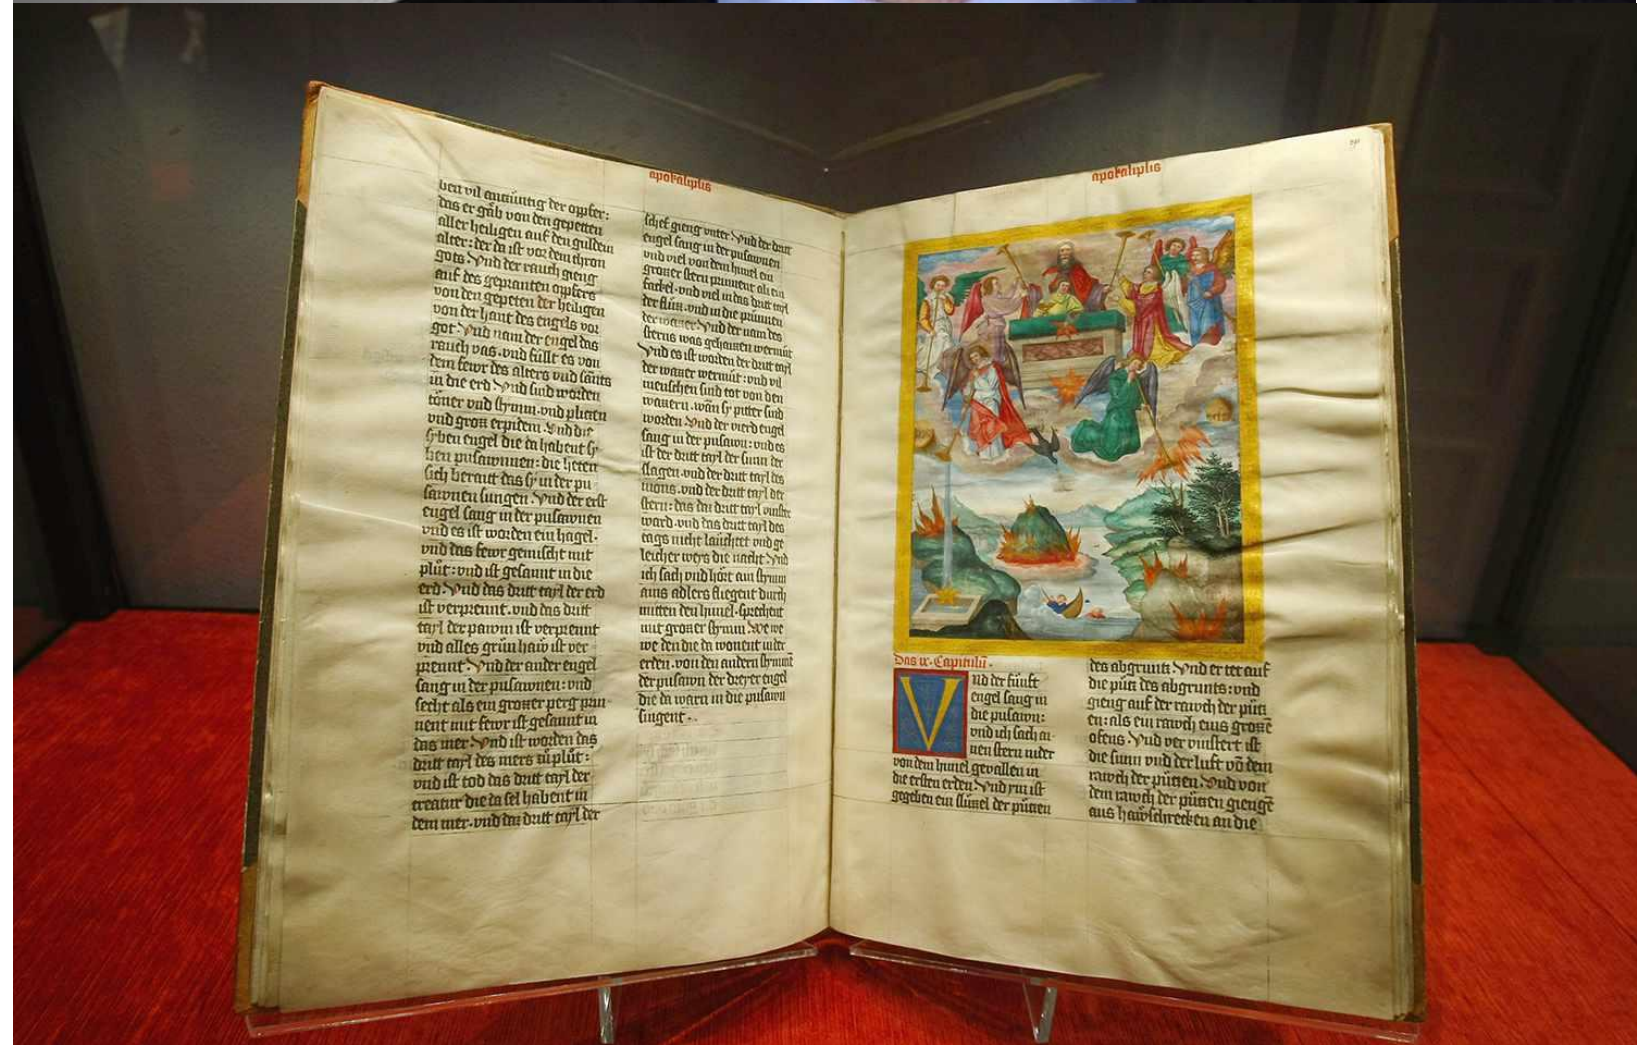 apokalipsis
ben vil antzüntig der opfer:
das er gäb von den gepetten
aller heiligen auf den guldein
alter: der da ist vor dem thron
gots Vnd der rauch gieng
auf des gepranten opfers
von den gepeten der heiligen
von der hant des engels vor
got Vnd nam der engel das
rauch vas. vnd füllt es von
dem fewr des alters vnd sants
in die erd Vnd sind worden
töner vnd stymm. vnd plitzen
vnd groß erpidem. Vnd die
syben engel die da habent sy-
ben pusawnnen: die heten
sich beraitt das sy in der pu-
sawnen sungen. Vnd der erst
engel sang in der pusawnen
vnd es ist worden ein hagel.
vnd das fewr gemischt mit
plüt: vnd ist gesannt in die
erd. Vnd das dritt tayl der erd
ist verprennt. vnd das dritt
tayl der pawm ist verprennt
vnd alles grün haw ist ver
prennt Vnd der ander engel
sang in der pusawnen: vnd
secht als ein grosser perg prin
nent mit fewr ist gesannt in
das mer Vnd ist worden das
dritt tayl des mers zü plüt:
vnd ist tod das dritt tayl der
creatur die da sel habent in
dem mer. vnd daz dritt tayl der
schef gieng vnter Vnd der dritt
engel sang in der pusawnen
vnd viel von dem himel ein
grosser stern prinnent als ein
fackel. vnd viel in das dritt tayl
der flüss. vnd in die prünnen
der wasser Vnd der nam des
sterns was gehaissen wermüt
Vnd es ist worden der dritt tayl
der wasser wermüt: vnd vil
menschen sind tot von den
wassern. wann sy pitter sind
worden Vnd der vierd engel
sang in der pusawn: vnd es
ist der dritt tayl der sunn der
slagen. vnd der dritt tayl des
mons. vnd der dritt tayl der
stern: das daz dritt tayl vinster
ward. vnd das dritt tayl des
tags nicht lauchtet vnd ge
leicher weys die nacht Vnd
ich sach vnd hört ain stymm
ains adlers fliegent durch
mitten den himel. sprechent
mit grosser stymm We we
we den die da wonent in der
erden. von den andern stymmen
der pusawn der dreyer engel
die da warn in die pusawn
singent.
apokalipsis
Das ix. Capitulū.
Vnd der fünft
engel sang in
die pusawn:
vnd ich sach ai-
nen stern nider
von dem himel gevallen in
die ersten erden Vnd ym ist
gegeben ein slüssel der pützen
des abgrunts Vnd er tet auf
die pütz des abgrunts: vnd
gieng auf der rawch der pütz
en: als ein rawch eins grosse
ofens. Vnd ver vinstert ist
die sunn vnd der luft vō dem
rawch der pützen. Vnd von
dem rawch der pützen gienge
aus hawschrecken an die